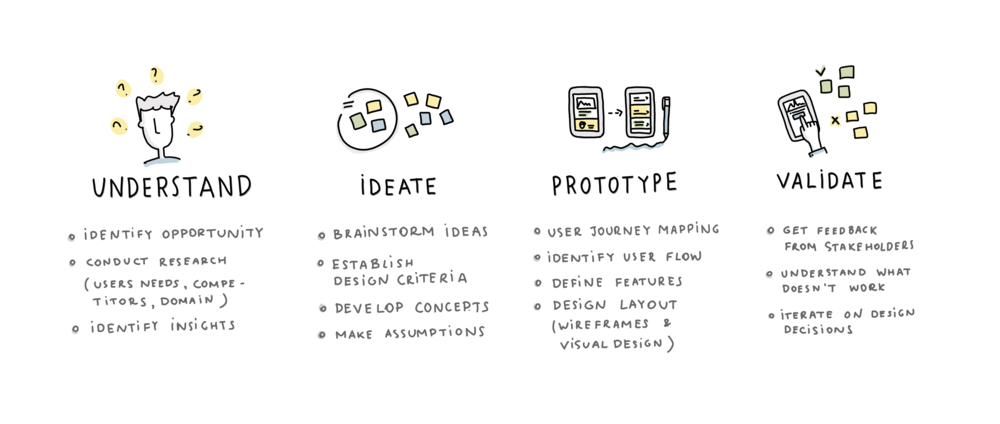 UNDERSTAND
IDENTIFY OPPORTUNITY
CONDUCT RESEARCH
(USERS NEEDS, COMPE-
TITORS, DOMAIN)
IDENTIFY INSIGHTS
IDEATE
BRAINSTORM IDEAS
ESTABLISH
DESIGN CRITERIA
DEVELOP CONCEPTS
MAKE ASSUMPTIONS
PROTOTYPE
USER JOURNEY MAPPING
IDENTIFY USER FLOW
DEFINE FEATURES
DESIGN LAYOUT
(WIREFRAMES &
VISUAL DESIGN)
VALIDATE
GET FEEDBACK
FROM STAKEHOLDERS
UNDERSTAND WHAT
DOESN'T WORK
ITERATE ON DESIGN
DECISIONS